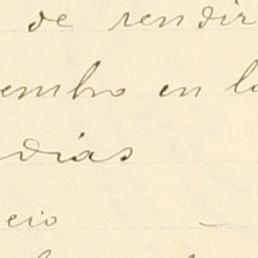 de rendir
embro en l
dias
cio